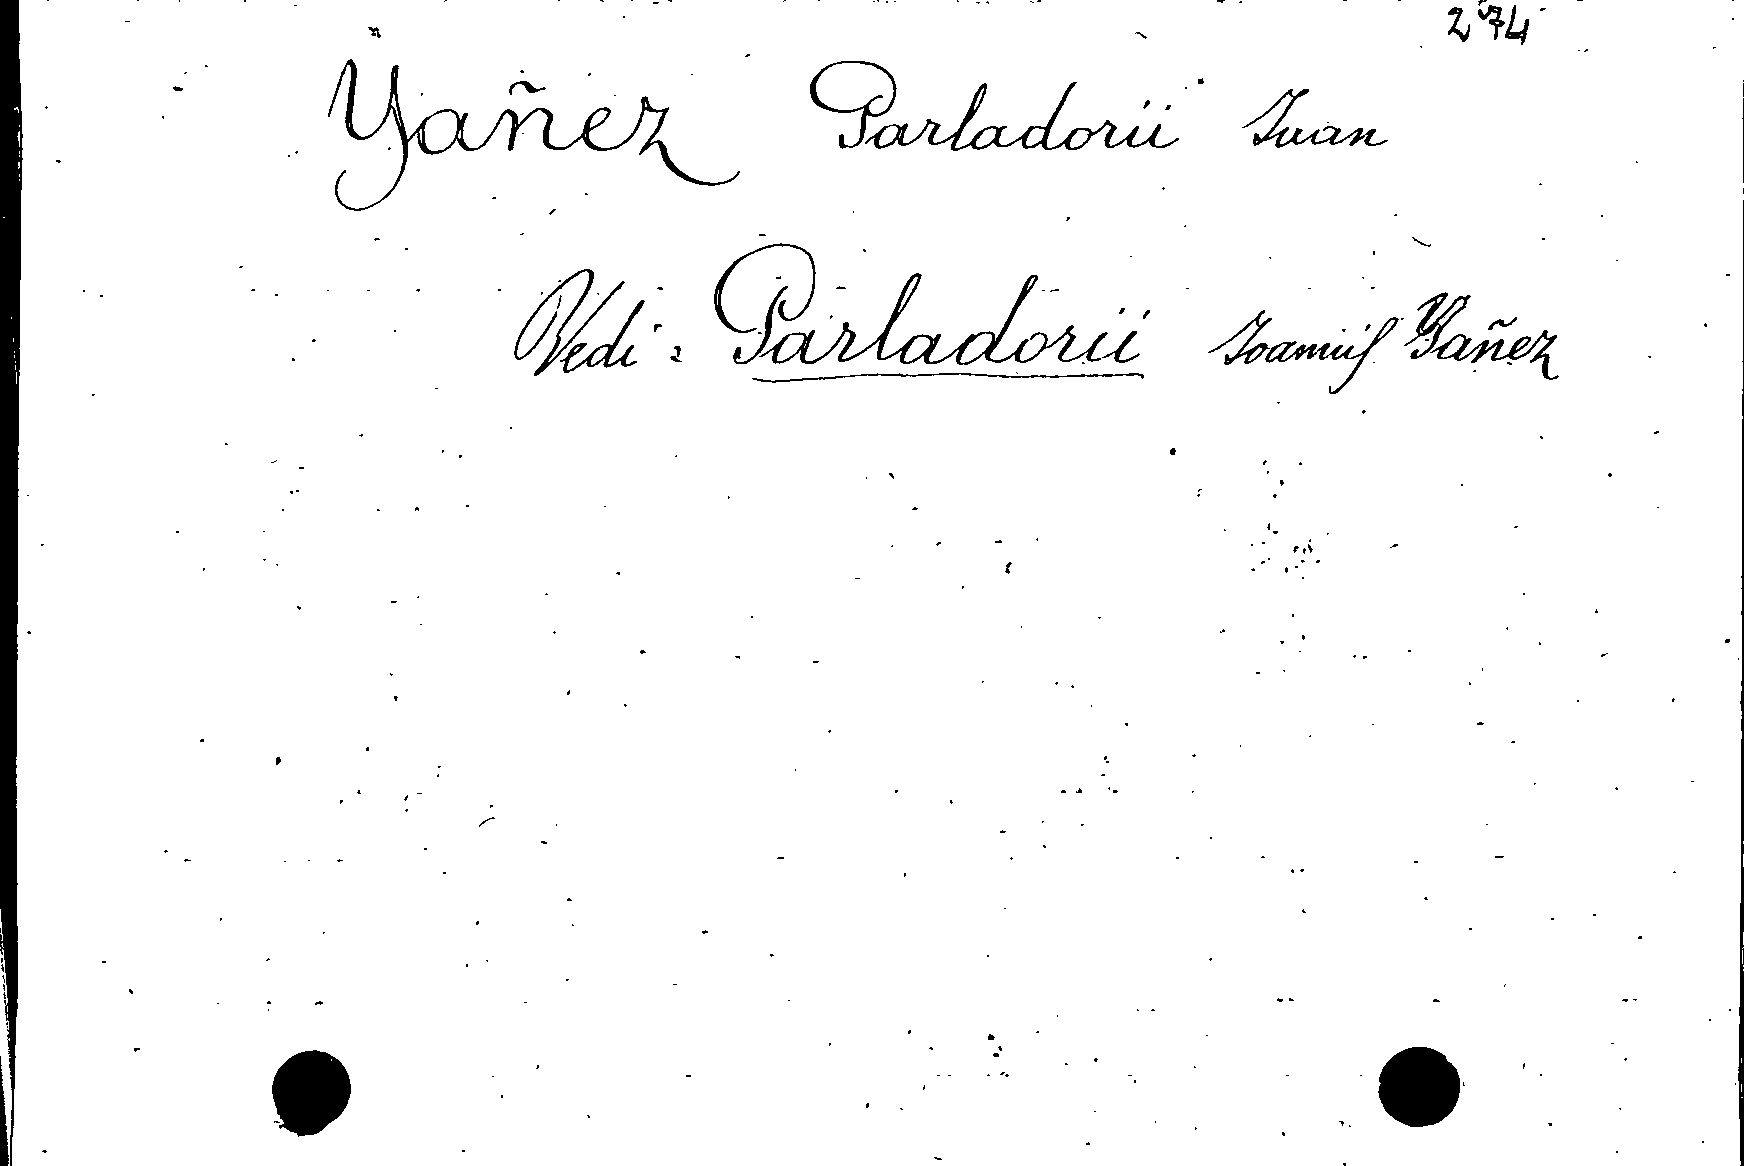 274
Yañez Parladorii Juan
Vedi: Parladorii Joannis Yañez